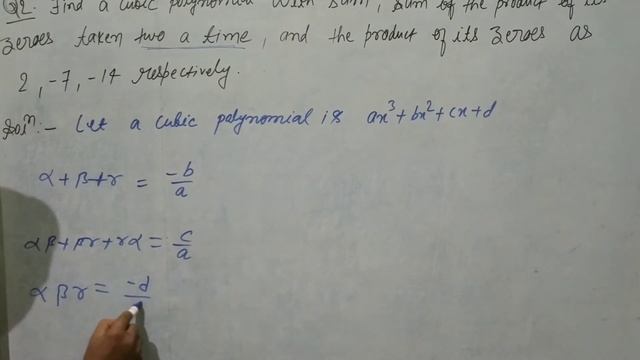 Q2. Find a cubic polynomial with sum, sum of the product of its
zeroes taken two a time, and the product of its zeroes as
2, -7, -14 respectively.
Solⁿ:- Let a cubic polynomial is ax³+bx²+cx+d
α+β+r = -b/a
αβ+βr+rα = c/a
αβr = -d